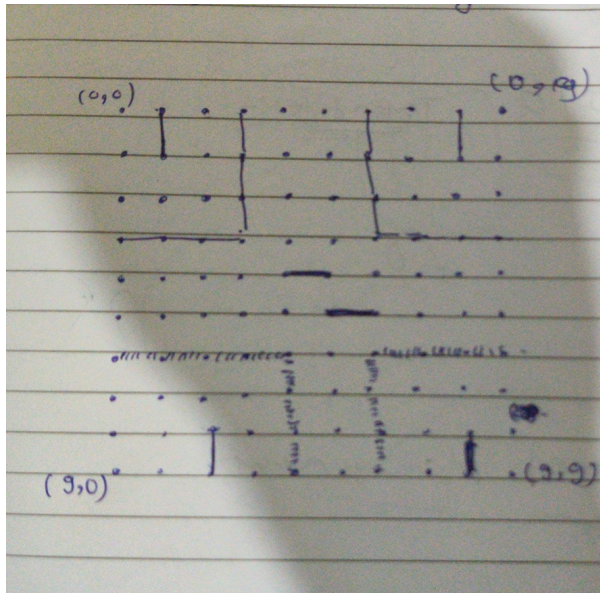 (0,0)
(0,9)
(9,0)
(9,9)